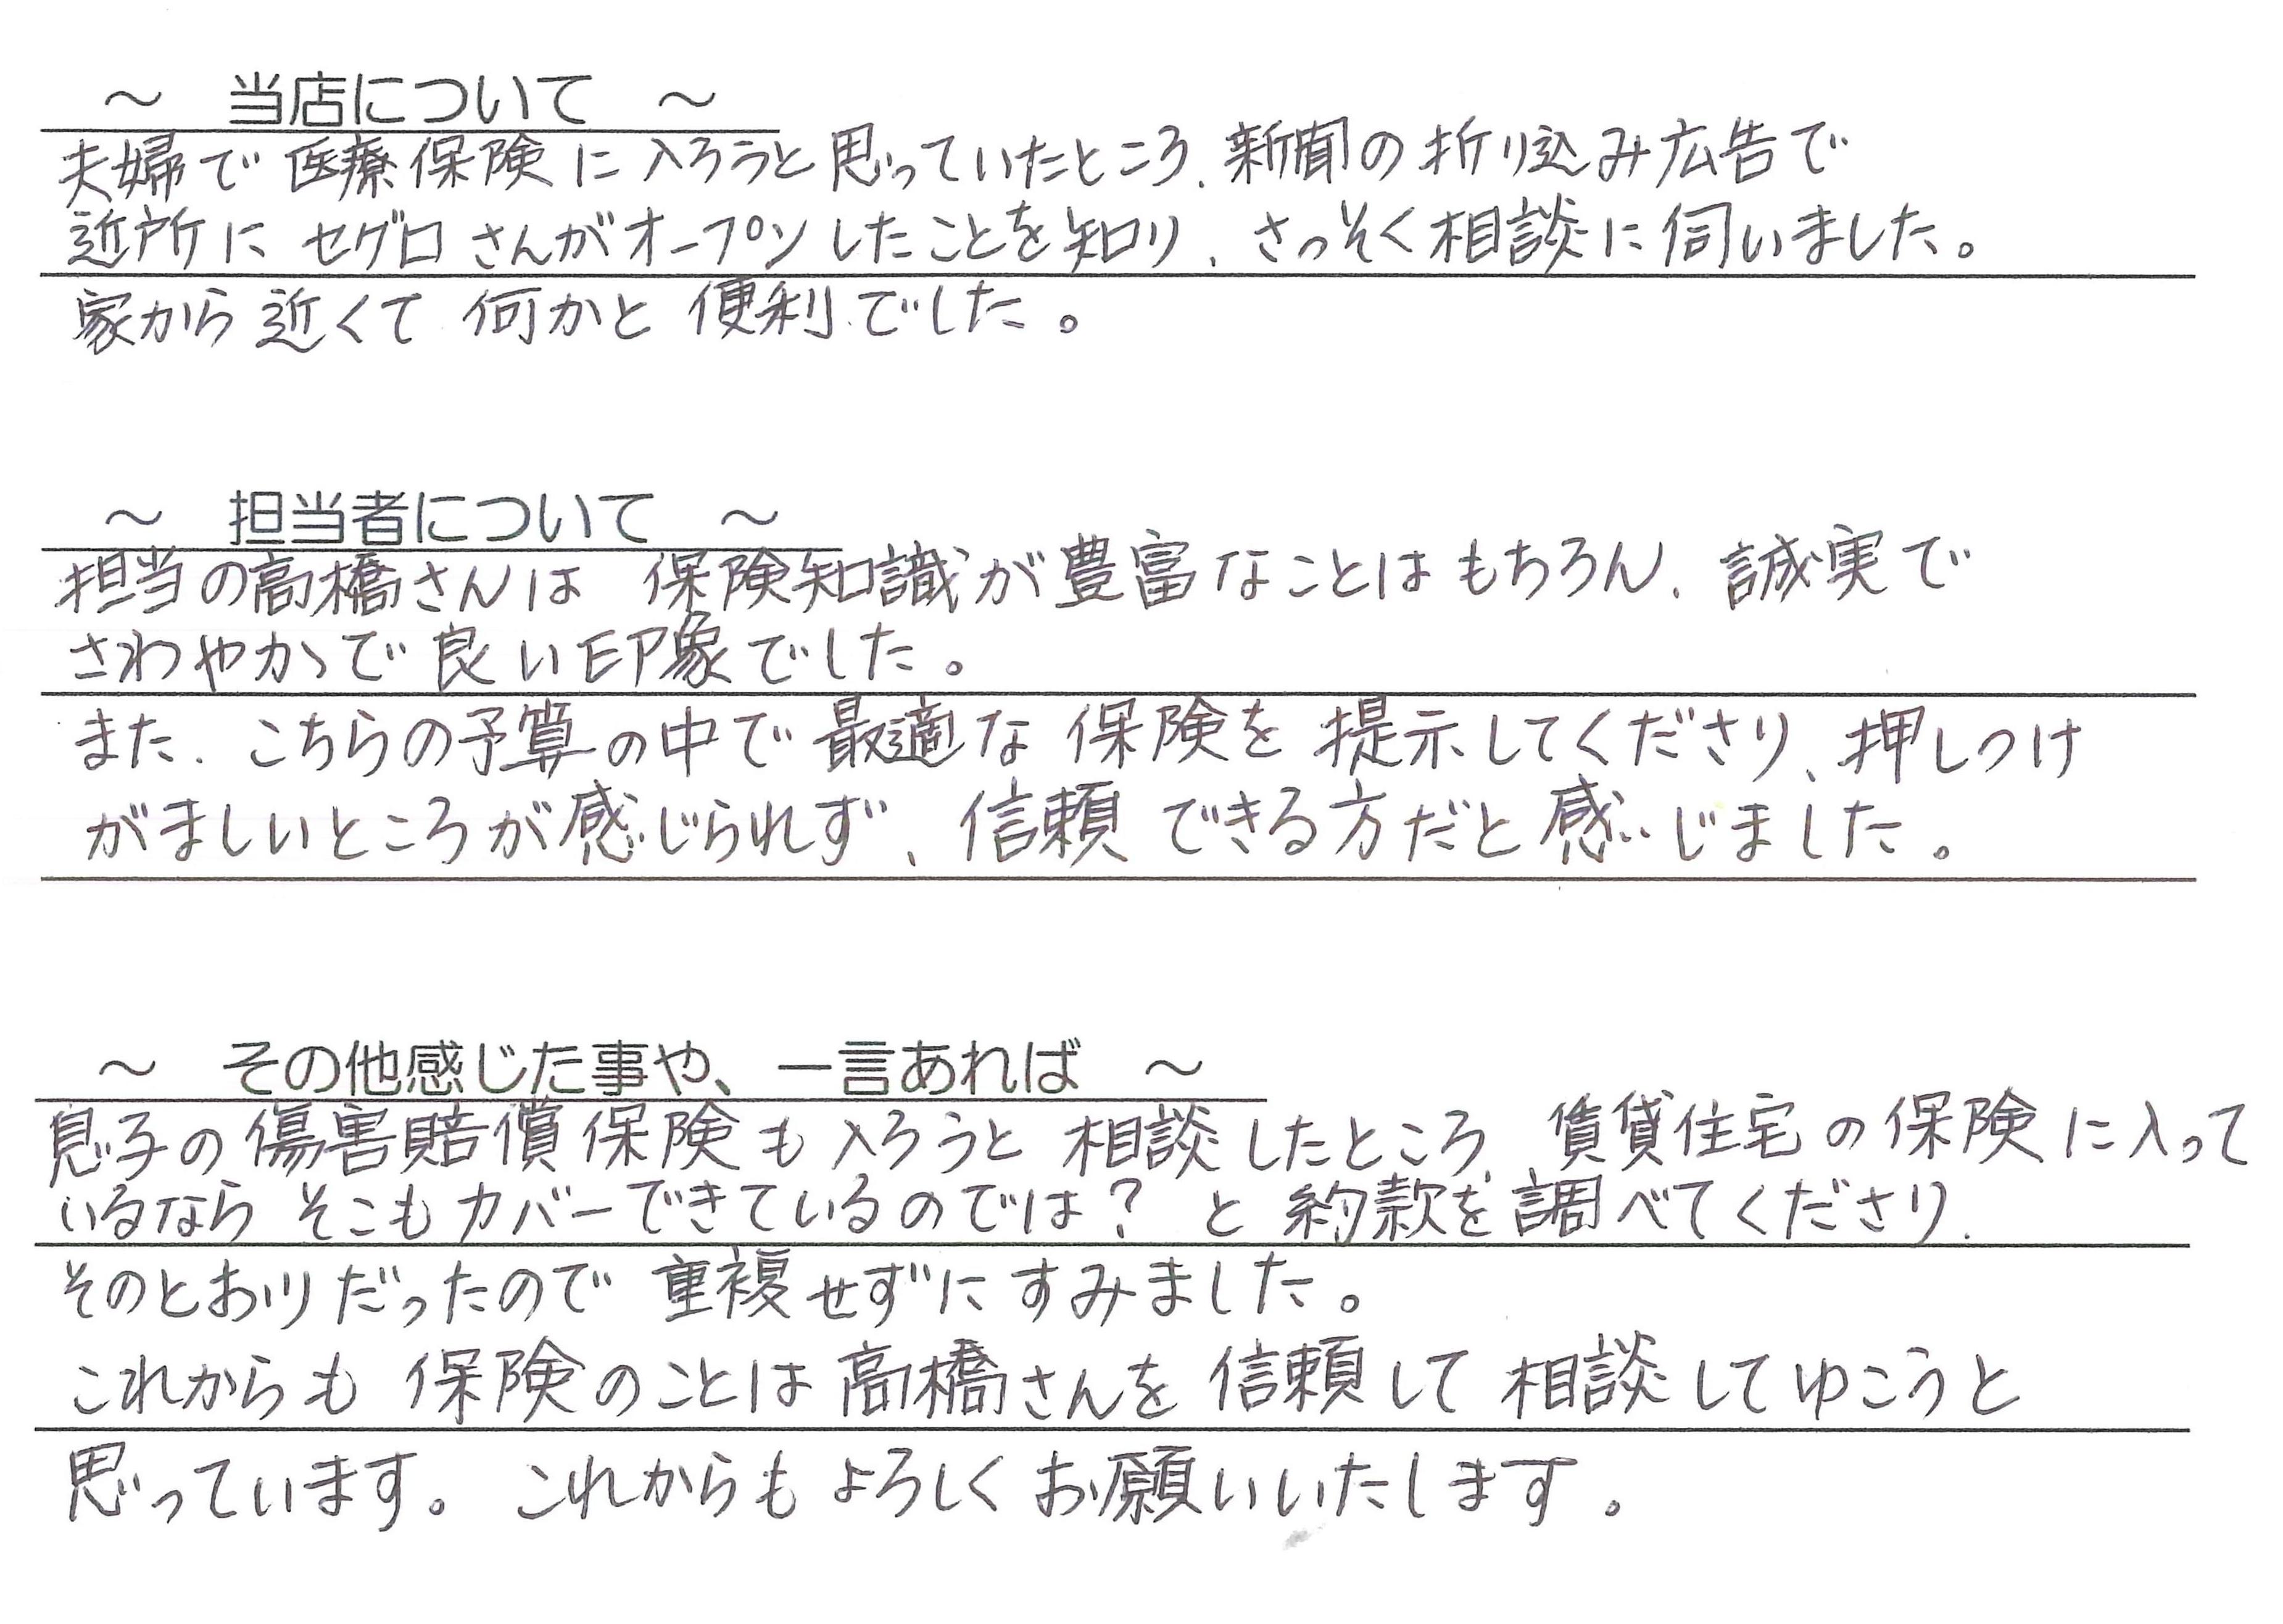 ～　当店について　～
夫婦で医療保険に入ろうと思っていたところ、新聞の折り込み広告で
近所にセグロさんがオープンしたことを知り、さっそく相談に伺いました。
家から近くて何かと便利でした。
～　担当者について　～
担当の高橋さんは保険知識が豊富なことはもちろん、誠実で
さわやかで良い印象でした。
また、こちらの予算の中で最適な保険を提示してくださり、押しつけ
がましいところが感じられず、信頼できる方だと感じました。
～　その他感じた事や、一言あれば　～
息子の傷害賠償保険も入ろうと相談したところ、賃貸住宅の保険に入って
いるならそこもカバーできているのでは？と約款を調べてくださり、
そのとおりだったので重複せずにすみました。
これからも保険のことは高橋さんを信頼して相談してゆこうと
思っています。これからもよろしくお願いいたします。